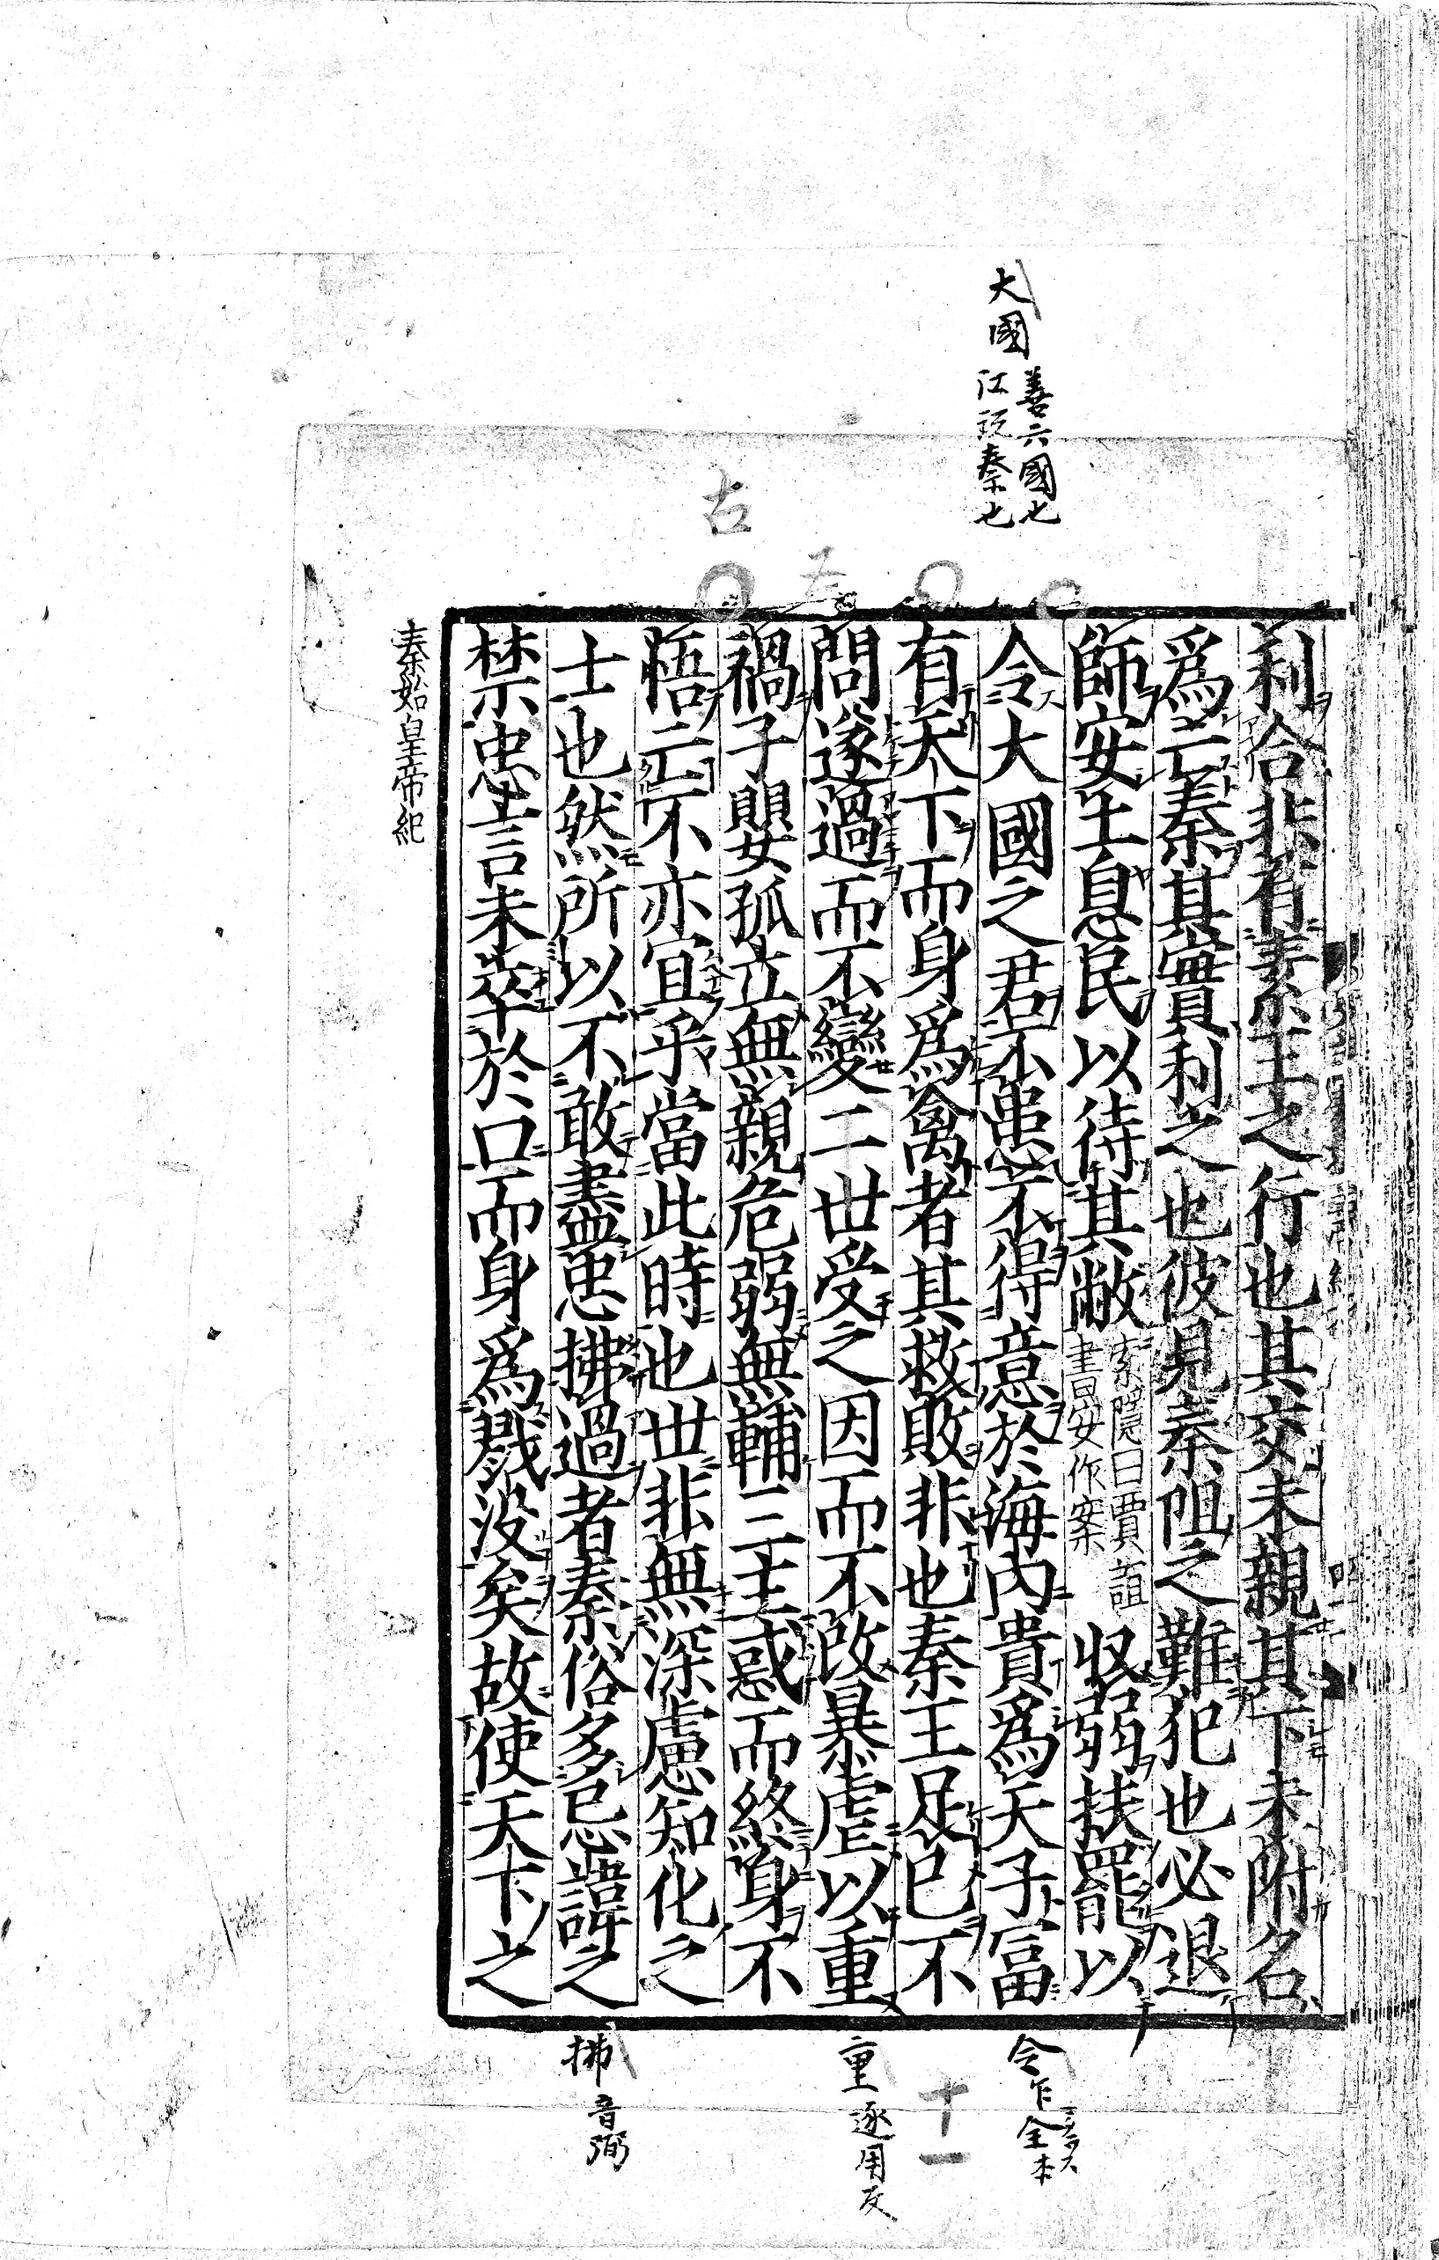 大國
善六國也
江説秦也
古
五
利合非有素王之行也其交未親其下未附名
爲亡秦其實利之也彼見秦阻之難犯也必退
師安土息民以待其敝索隱曰賈誼書安作案収弱扶罷以
令大國之君不患不得意於海内貴爲天子富
有天下而身爲禽者其救敗非也秦王足已不
問遂過而不變二世受之因而不改暴虐以重
禍子嬰孤立無親危弱無輔三主惑而終身不
悟亡不亦宜乎當此時也世非無深慮知化之
士也然所以不敢盡忠拂過者秦俗多忌諱之
禁忠言未卒於口而身爲戮没矣故使天下之
秦始皇帝紀
令乍全本
重逐用反
十一
拂音弼